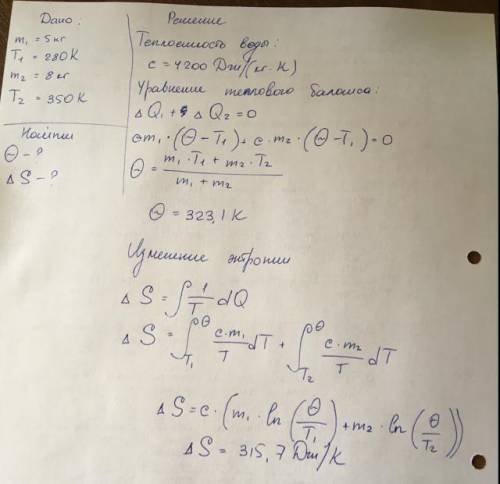 Дано:
m₁ = 5 кг
T₁ = 280 К
m₂ = 8 кг
T₂ = 350 К
Найти
Θ - ?
ΔS - ?
Решение
Теплоемкость воды:
c = 4200 Дж/(кг·К)
Уравнение теплового баланса:
ΔQ₁ + ΔQ₂ = 0
cm₁·(Θ-T₁) + c·m₂·(Θ-T₁) = 0
Θ = (m₁·T₁ + m₂·T₂)/(m₁ + m₂)
Θ = 323,1 К
Изменение энтропии
ΔS = ∫ 1/T dQ
ΔS = ∫_{T₁}^{Θ} c·m₁/T dT + ∫_{T₂}^{Θ} c·m₂/T dT
ΔS = c·(m₁·ln(Θ/T₁) + m₂·ln(Θ/T₂))
ΔS = 315,7 Дж/К